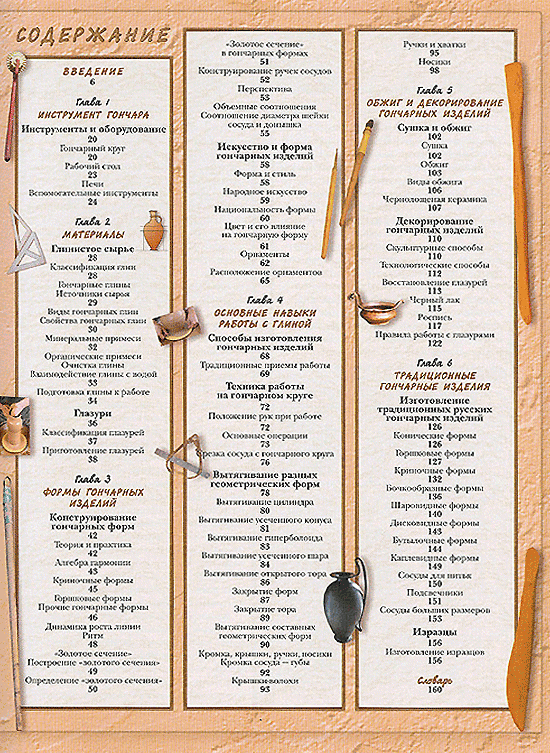 СОДЕРЖАНИЕ
ВВЕДЕНИЕ
6
Глава 1
ИНСТРУМЕНТ ГОНЧАРА
Инструменты и оборудование
20
Гончарный круг
20
Рабочий стол
23
Печи
Вспомогательные инструменты
24
Глава 2
МАТЕРИАЛЫ
Глинистое сырье
28
Классификация глин
28
Гончарные глины
Источники сырья
29
Виды гончарных глин
Свойства гончарных глин
30
Минеральные примеси
32
Органические примеси
Очистка глины
Взаимодействие глины с водой
33
Подготовка глины к работе
34
Глазури
36
Классификация глазурей
37
Приготовление глазурей
38
Глава 3
ФОРМЫ ГОНЧАРНЫХ
ИЗДЕЛИЙ
Конструирование
гончарных форм
42
Теория и практика
42
Алгебра гармонии
43
Криночные формы
45
Горшковые формы
Прочие гончарные формы
46
Динамика роста линии
Ритм
48
«Золотое сечение»
Построение «золотого сечения»
49
Определение «золотого сечения»
50
«Золотое сечение»
в гончарных формах
51
Конструирование ручек сосудов
52
Перспектива
53
Объемные соотношения
Соотношения диаметра шейки
сосуда и донышка
55
Искусство и форма
гончарных изделий
58
Форма и стиль
58
Народное искусство
59
Национальность формы
60
Цвет и его влияние
на гончарную форму
61
Орнаменты
62
Расположение орнаментов
65
Глава 4
ОСНОВНЫЕ НАВЫКИ
РАБОТЫ С ГЛИНОЙ
Способы изготовления
гончарных изделий
68
Традиционные приемы работы
69
Техника работы
на гончарном круге
72
Положение рук при работе
72
Основные операции
73
Срезка сосуда с гончарного круга
76
Вытягивание разных
геометрических форм
78
Вытягивание цилиндра
80
Вытягивание усеченного конуса
81
Вытягивание гиперболоида
83
Вытягивание усеченного шара
84
Вытягивание открытого тора
86
Закрытие форм
87
Закрытие тора
89
Вытягивание составных
геометрических форм
90
Кромка, крышки, ручки, носики
Кромка сосуда — губы
92
Крышки-волохи
93
Ручки и хватки
95
Носики
98
Глава 5
ОБЖИГ И ДЕКОРИРОВАНИЕ
ГОНЧАРНЫХ ИЗДЕЛИЙ
Сушка и обжиг
102
Сушка
102
Обжиг
103
Виды обжига
106
Чернолощеная керамика
107
Декорирование
гончарных изделий
110
Скульптурные способы
110
Технологические способы
112
Восстановление глазурей
113
Черный лак
115
Роспись
117
Правила работы с глазурями
122
Глава 6
ТРАДИЦИОННЫЕ
ГОНЧАРНЫЕ ИЗДЕЛИЯ
Изготовление
традиционных русских
гончарных изделий
126
Конические формы
126
Горшковые формы
127
Криночные формы
132
Бочкообразные формы
136
Шаровидные формы
140
Дисковидные формы
143
Бутылочные формы
144
Каплевидные формы
149
Сосуды для питья
150
Подсвечники
151
Сосуды больших размеров
153
Изразцы
156
Изготовление изразцов
156
Словарь
160